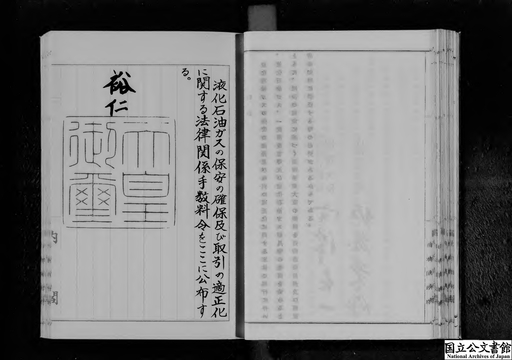 液化石油ガスの保安の確保及び取引の適正化
に関する法律関係手数料令をここに公布す
る。
裕仁
天皇
御璽
国立公文書館
National Archives of Japan